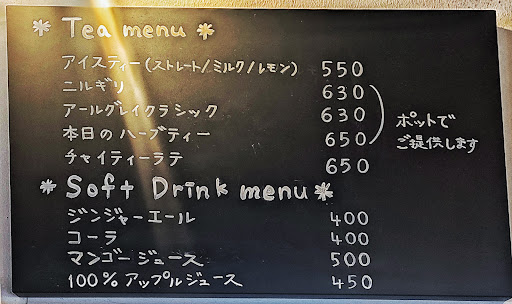 * Tea menu *
アイスティー(ストレート/ミルク/レモン) 550
ニルギリ 630
アールグレイクラシック 630
本日のハーブティー 650
ポットで
ご提供します
チャイティーラテ 650
* Soft Drink menu *
ジンジャーエール 400
コーラ 400
マンゴージュース 500
100%アップルジュース 450